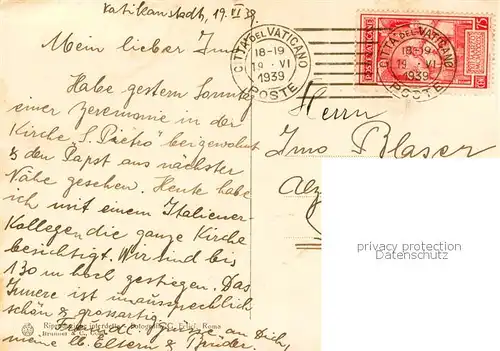 Vatikanstadt, 19. VI 39.
Mein lieber Imo
Habe gestern Sonntag
einer Zeremonie in der
Kirche „S. Pietro" beigewohnt
& den Papst aus nächster
Nähe gesehen. Heute habe
ich mit einem Italiener-
Kollegen die ganze Kirche
besichtigt. Wir sind bis
130 m hoch gestiegen. Das
Innere ist unaussprechlich
schön & grossartig.
Grüsse an Dich,
meine lb. Eltern & Brüder.
Riproduzione interdetta - Fotografia G. Felici, Roma
CITTA DEL VATICANO
18-19
19 · VI
1939
POSTE
CITTA DEL VATICANO
18-19
19 · VI
1939
POSTE
POSTE VATICANE
Herrn
Imo Blaser
privacy protection
watermark